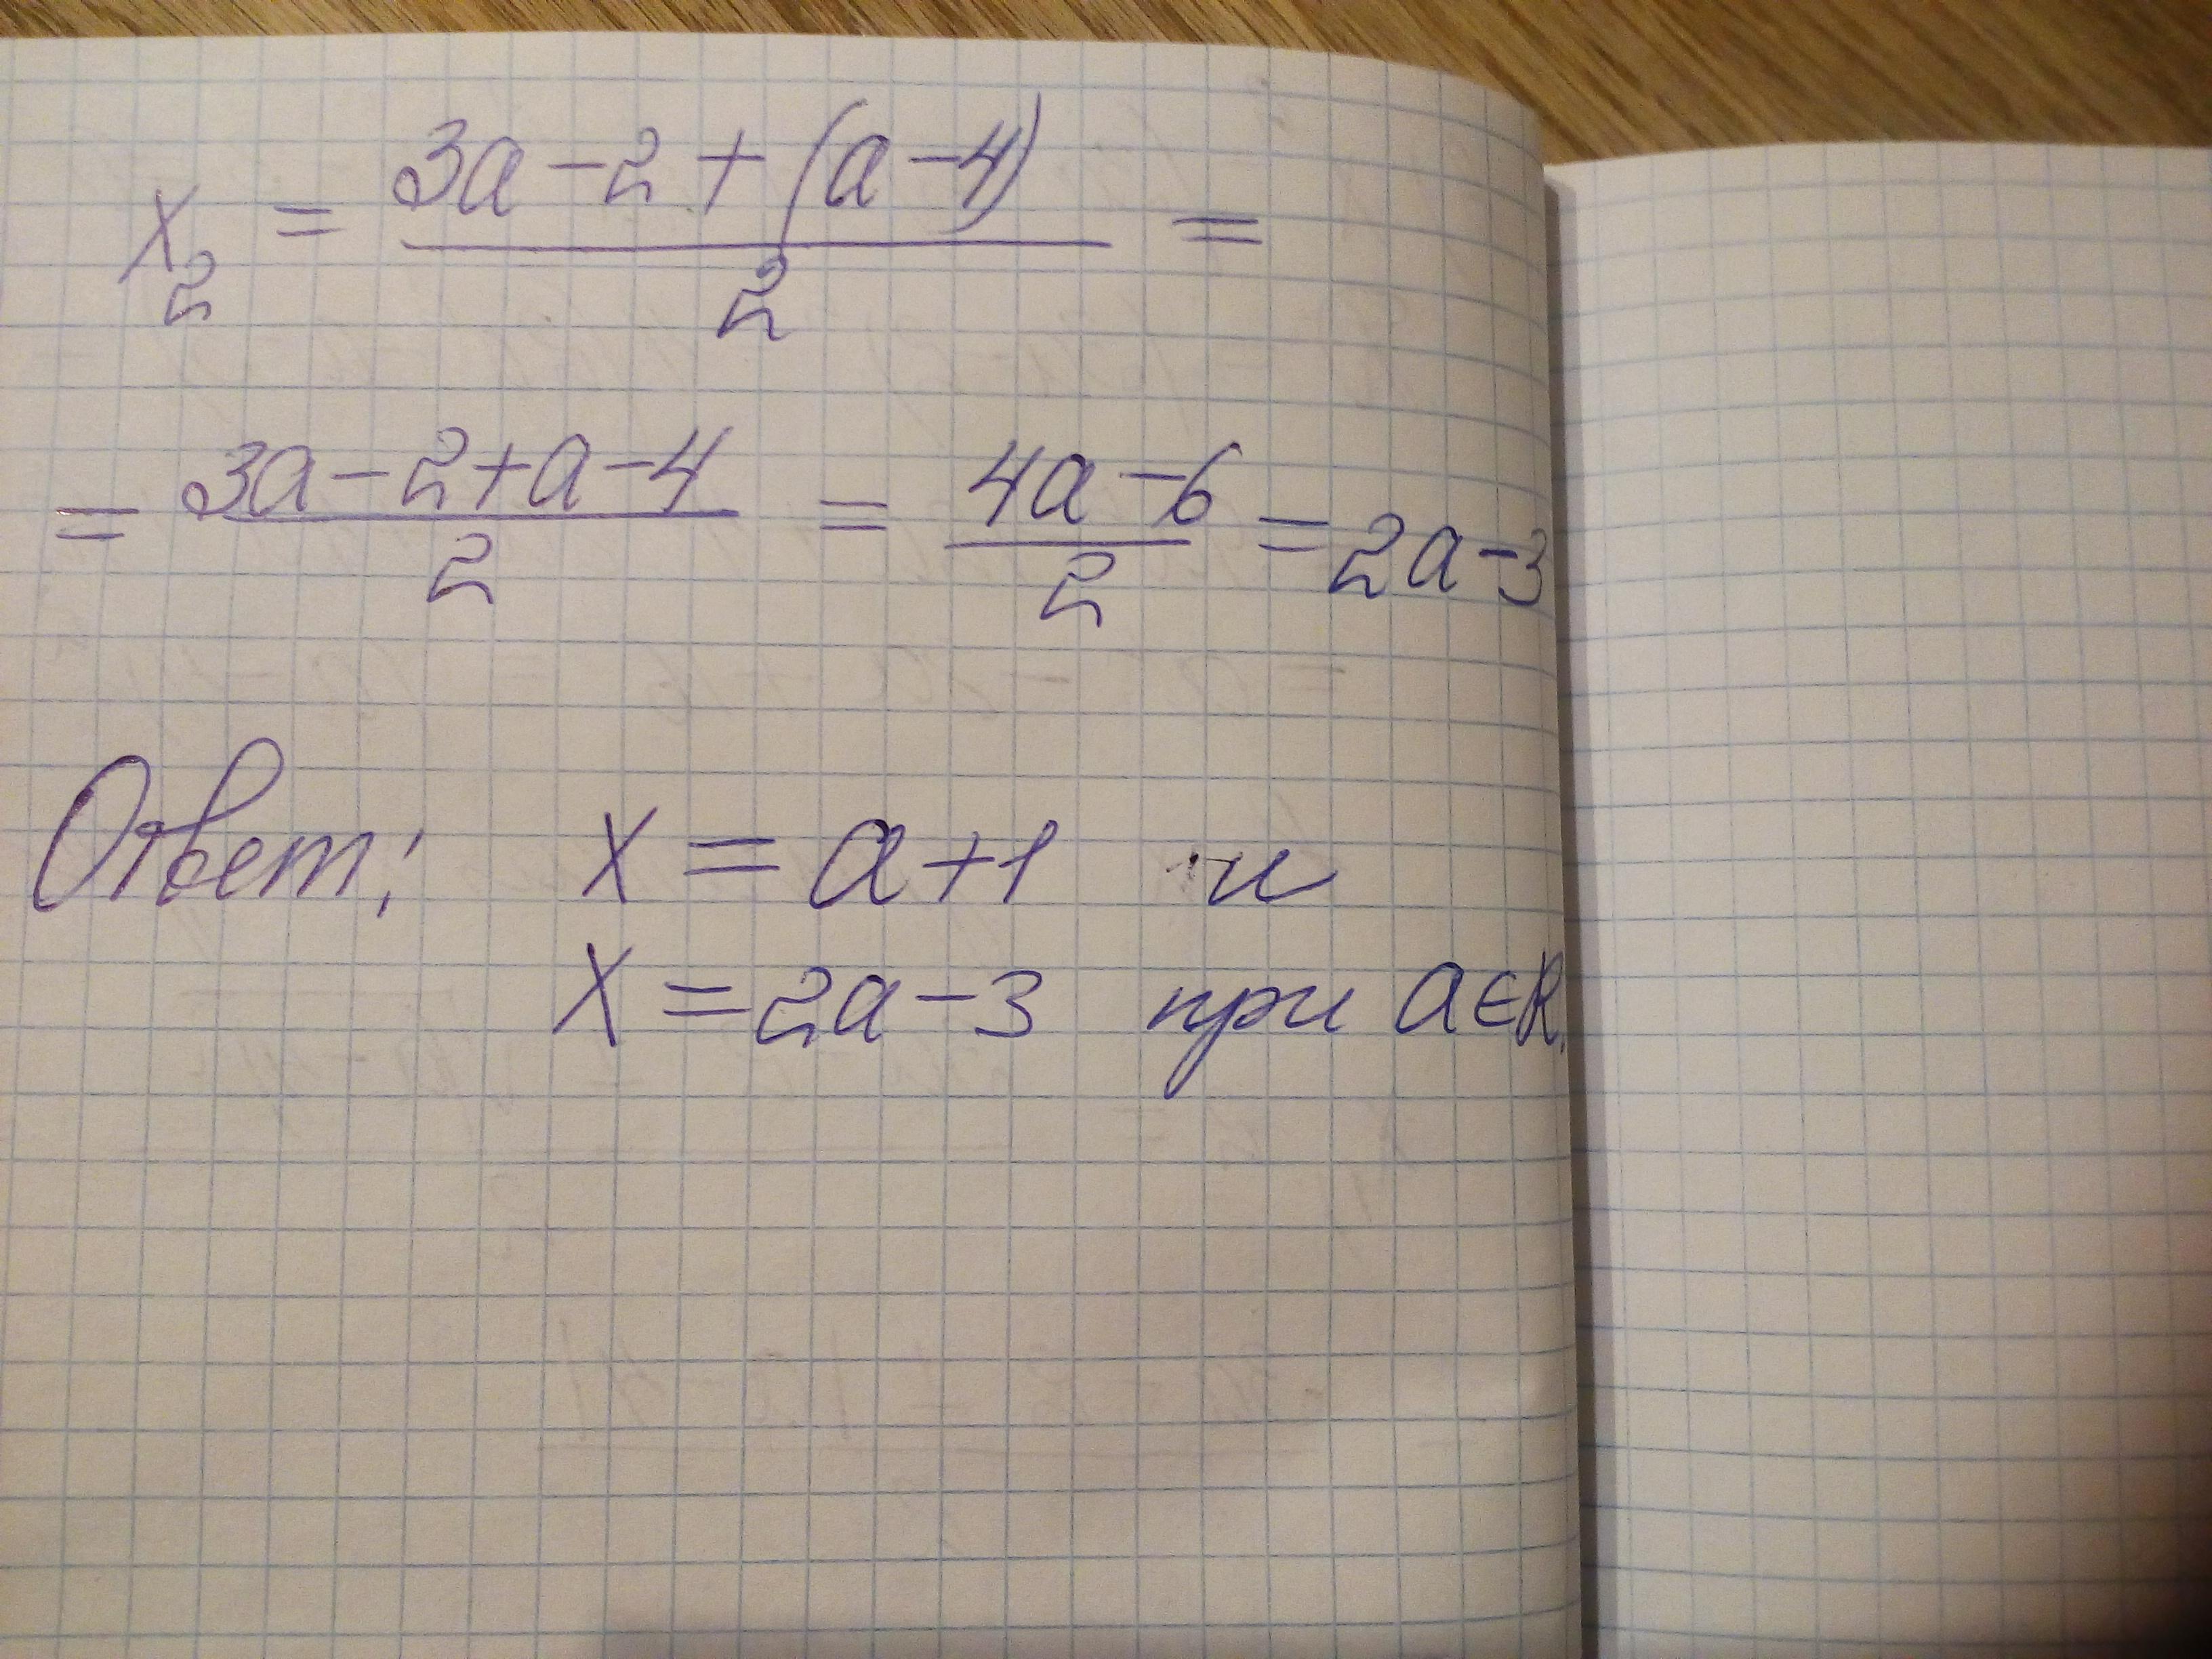 x₂ = (3a - 2 + (a - 4))/2 =
= (3a - 2 + a - 4)/2 = (4a - 6)/2 = 2a - 3
Ответ: x = a + 1 и
x = 2a - 3 при a ∈ R.